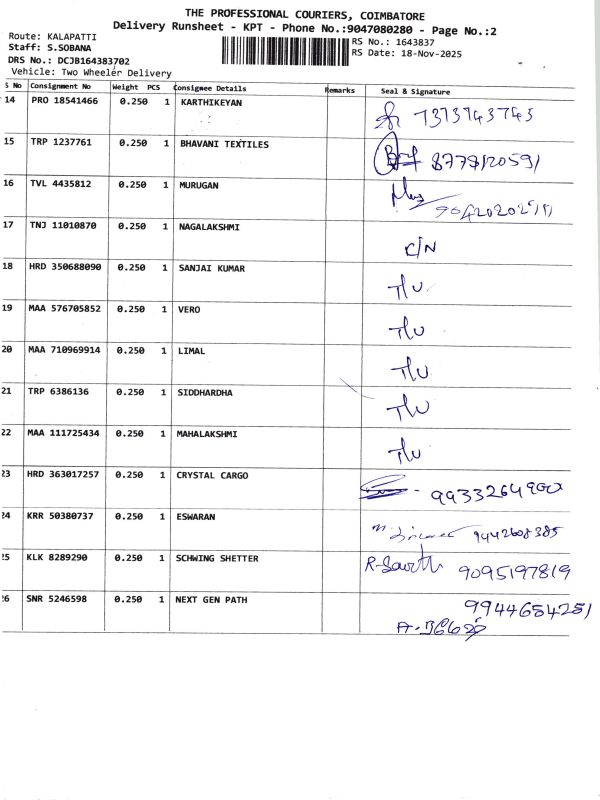 THE PROFESSIONAL COURIERS, COIMBATORE
Delivery Runsheet - KPT - Phone No.:9047080280 - Page No.:2
Route: KALAPATTI
Staff: S.SOBANA
DRS No.: DCJB164383702
Vehicle: Two Wheeler Delivery
RS No.: 1643837
RS Date: 18-Nov-2025
S No Consignment No Weight PCS Consignee Details Remarks Seal & Signature
14 PRO 18541466 0.250 1 KARTHIKEYAN 7373743743
15 TRP 1237761 0.250 1 BHAVANI TEXTILES
16 TVL 4435812 0.250 1 MURUGAN
17 TNJ 11010870 0.250 1 NAGALAKSHMI C/N
18 HRD 350688090 0.250 1 SANJAI KUMAR T/U
19 MAA 576705852 0.250 1 VERO T/U
20 MAA 710969914 0.250 1 LIMAL T/U
21 TRP 6386136 0.250 1 SIDDHARDHA T/U
22 MAA 111725434 0.250 1 MAHALAKSHMI T/U
23 HRD 363017257 0.250 1 CRYSTAL CARGO 9933264900
24 KRR 50380737 0.250 1 ESWARAN 9442608385
25 KLK 8289290 0.250 1 SCHWING SHETTER 9095197819
26 SNR 5246598 0.250 1 NEXT GEN PATH 9944654251